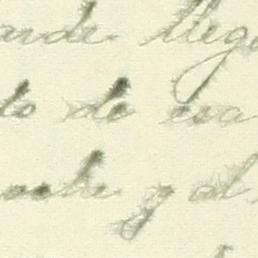 ande llego
to de esa
oche y al